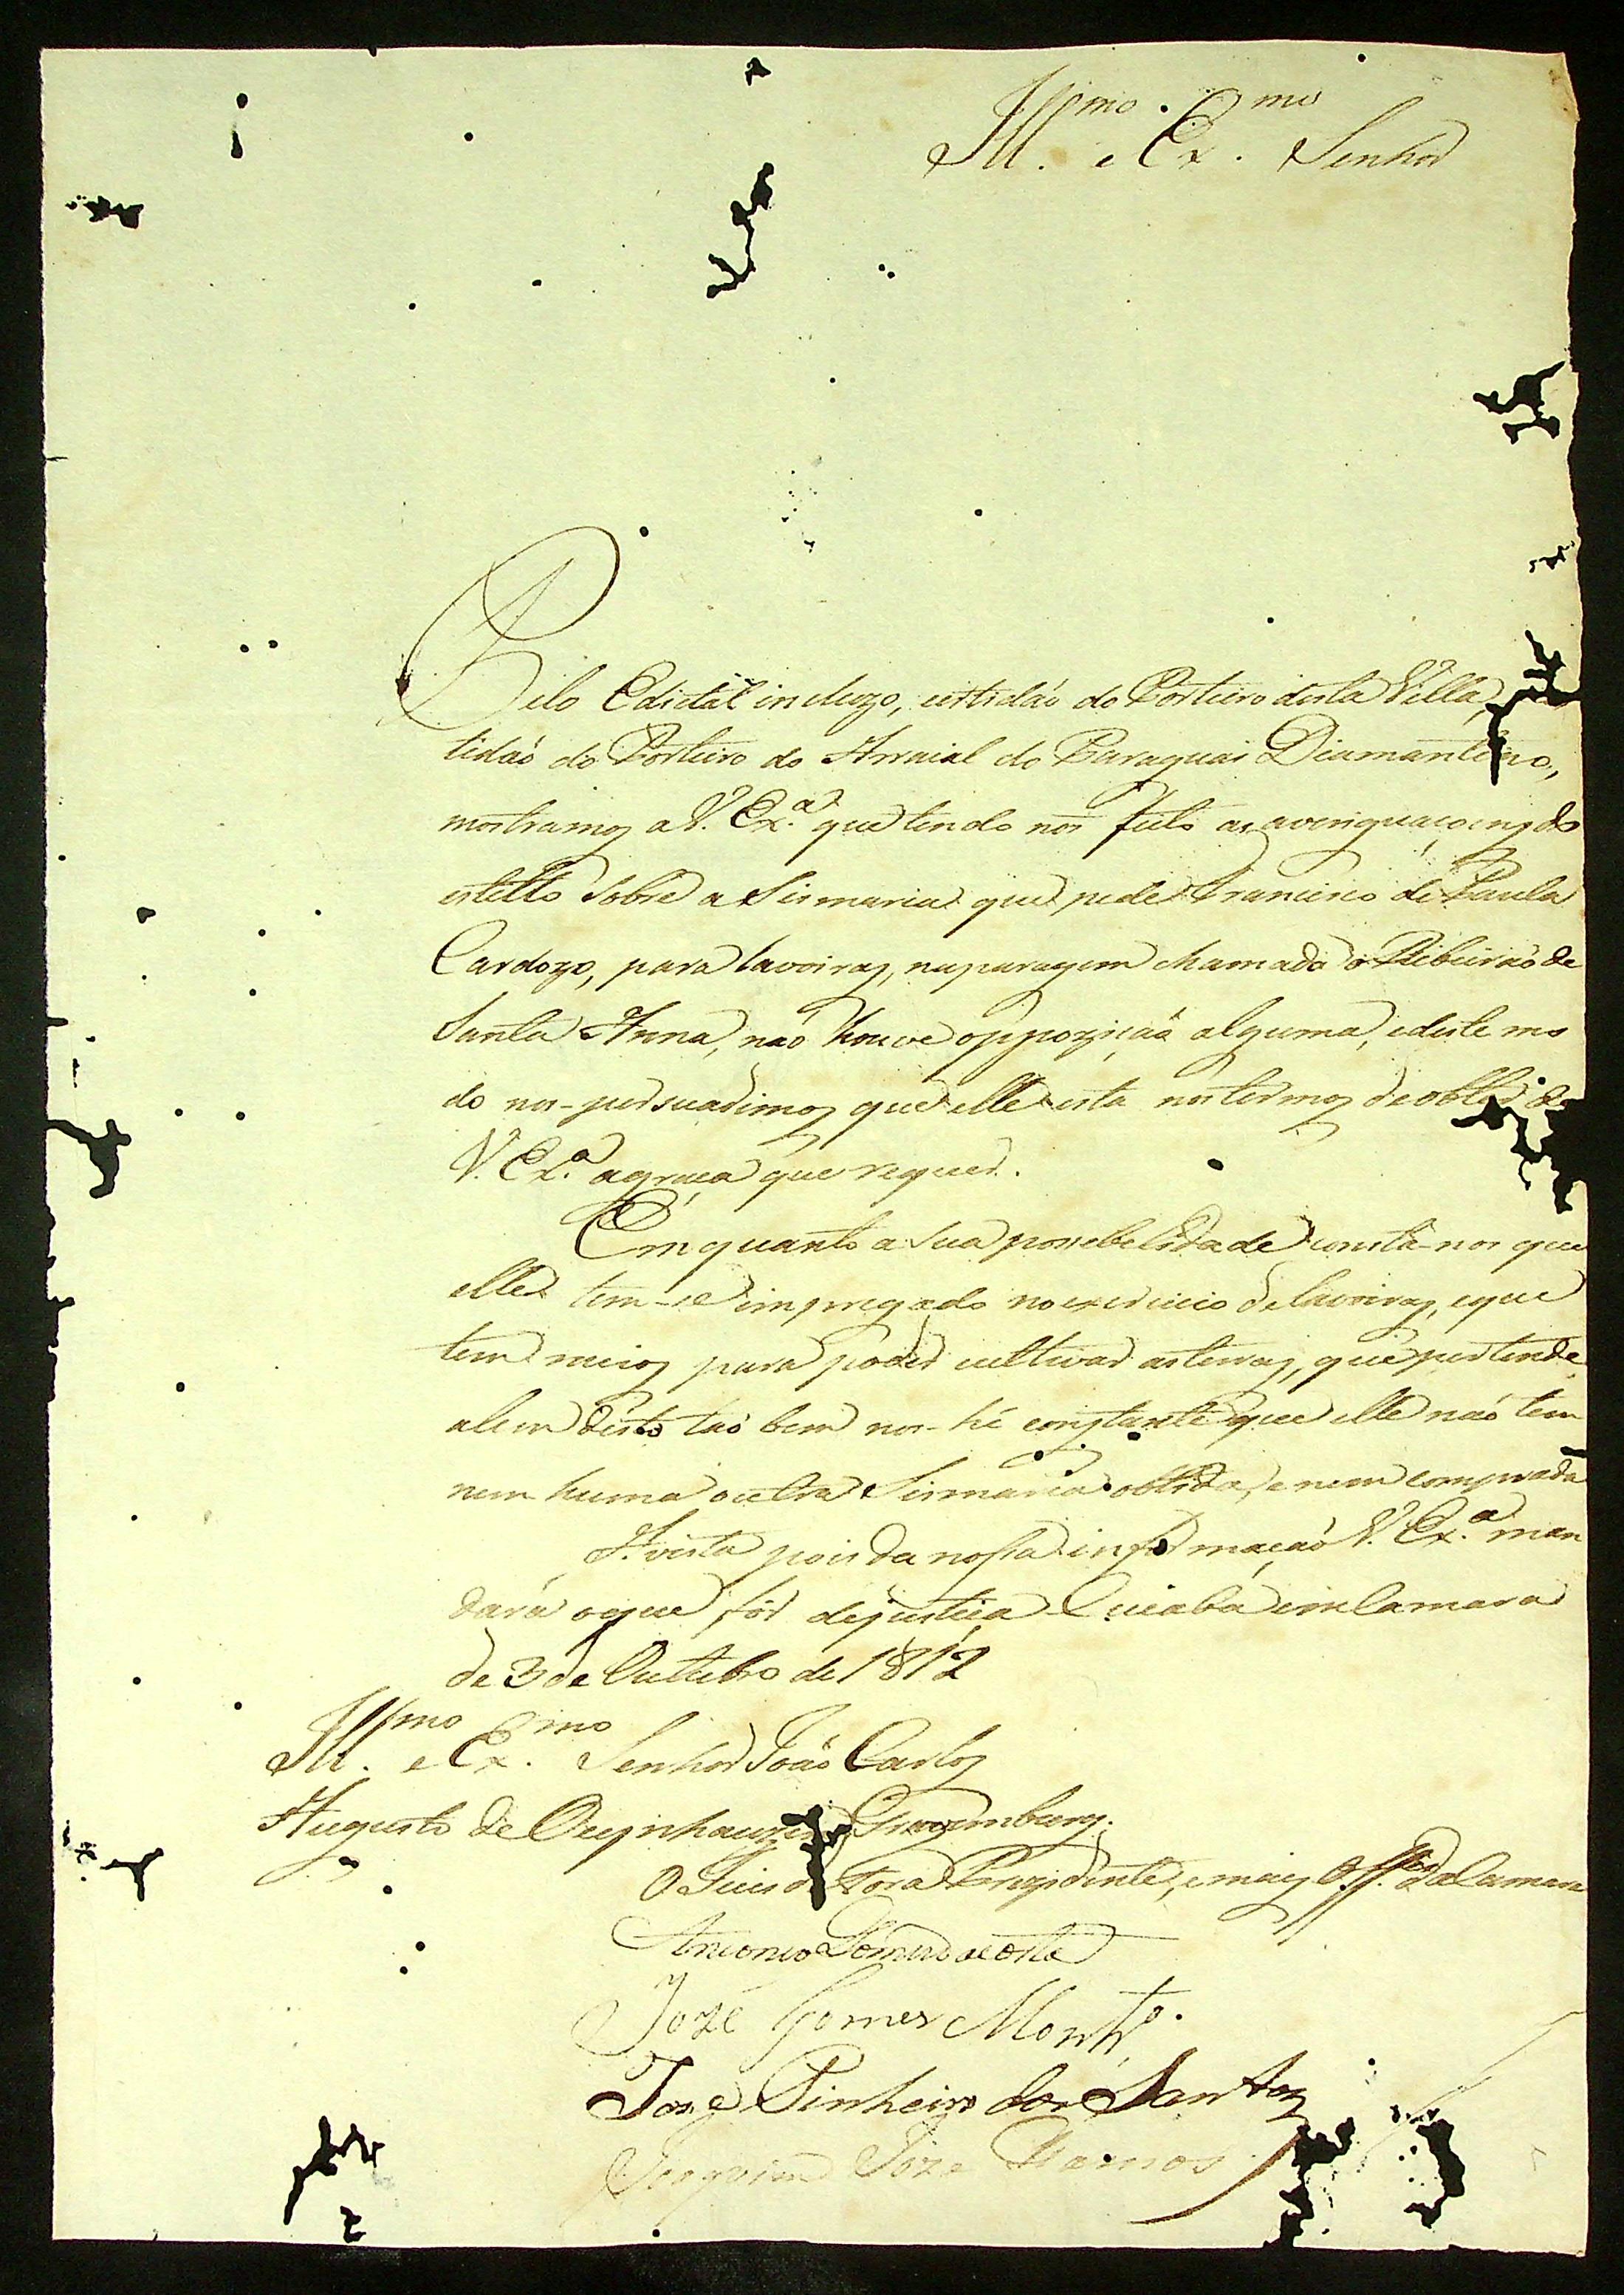 Ill.mo e Ex.mo Senhor
Pelo Edictal incluzo, certidáo do Porteiro desta Villa,
tidaó do Porteiro do Arraial do Paraguai Diamantino,
mostramos a V. Ex.ª que tendo nos feito as averiguaçoens do
estillo sobre a Sismaria que pede Francisco de Paula
Cardozo, para lavoiras, na paragem chamada o Ribeiraó de
Santa Anna, naó houve oppoziçaó alguma, e deste mo
do nos-persuadimos que elle esta nos termos de obter de
V. Ex.ª a graça que requer.
Em quanto a sua possebelidade consta-nos que
elle tem-se impregado no exercicio de lavoiras, e que
tem meios para poder cultivar as terras, que pertende,
alem disto taó bem nos-hé constante que elle naó tem
nem huma outra Sismaria obtida, e nem comprada
A vista pois da nossa informaçaó V. Ex.ª man
dará o que fòr de justiça Cuiabá em Camara
de 3 de Outubro de 1812
Ill.mo e Ex.mo Senhor Joaó Carlos
Augusto de Oeynhausen Gravemburg.
O Juis de Fora Prezidente, e mais Off.es da Camara
Antonio
José Gomes Montr.o
Jose Pinheiro dos Santos
Joaquim Joze Ramos